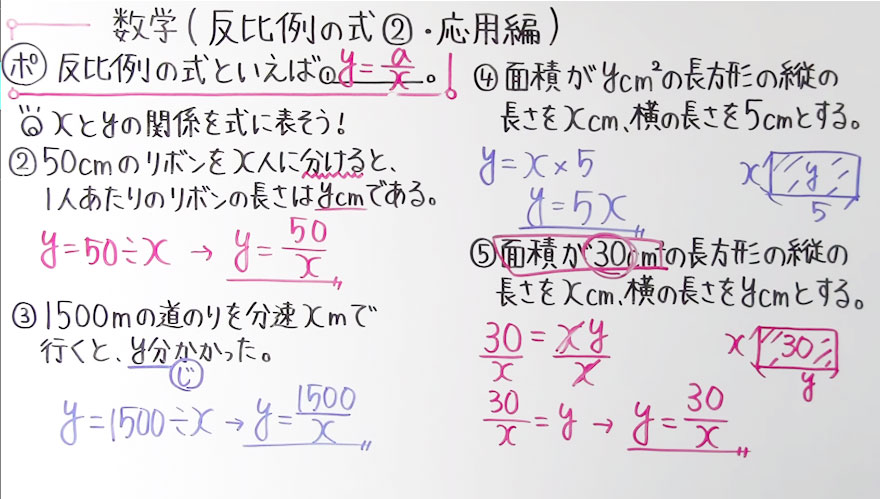 数学(反比例の式②・応用編)
ポ 反比例の式といえば① y=a/x 。
xとyの関係を式に表そう!
②50cmのリボンをx人に分けると、
1人あたりのリボンの長さはycmである。
y=50÷x → y=50/x
③1500mの道のりを分速xmで
行くと、y分かかった。
じ
y=1500÷x → y=1500/x
④面積がycm²の長方形の縦の
長さをxcm、横の長さを5cmとする。
y=x×5
y=5x
x y
5
⑤面積が30cm²の長方形の縦の
長さをxcm、横の長さをycmとする。
30/x=xy/x
x 30
y
30/x=y → y=30/x